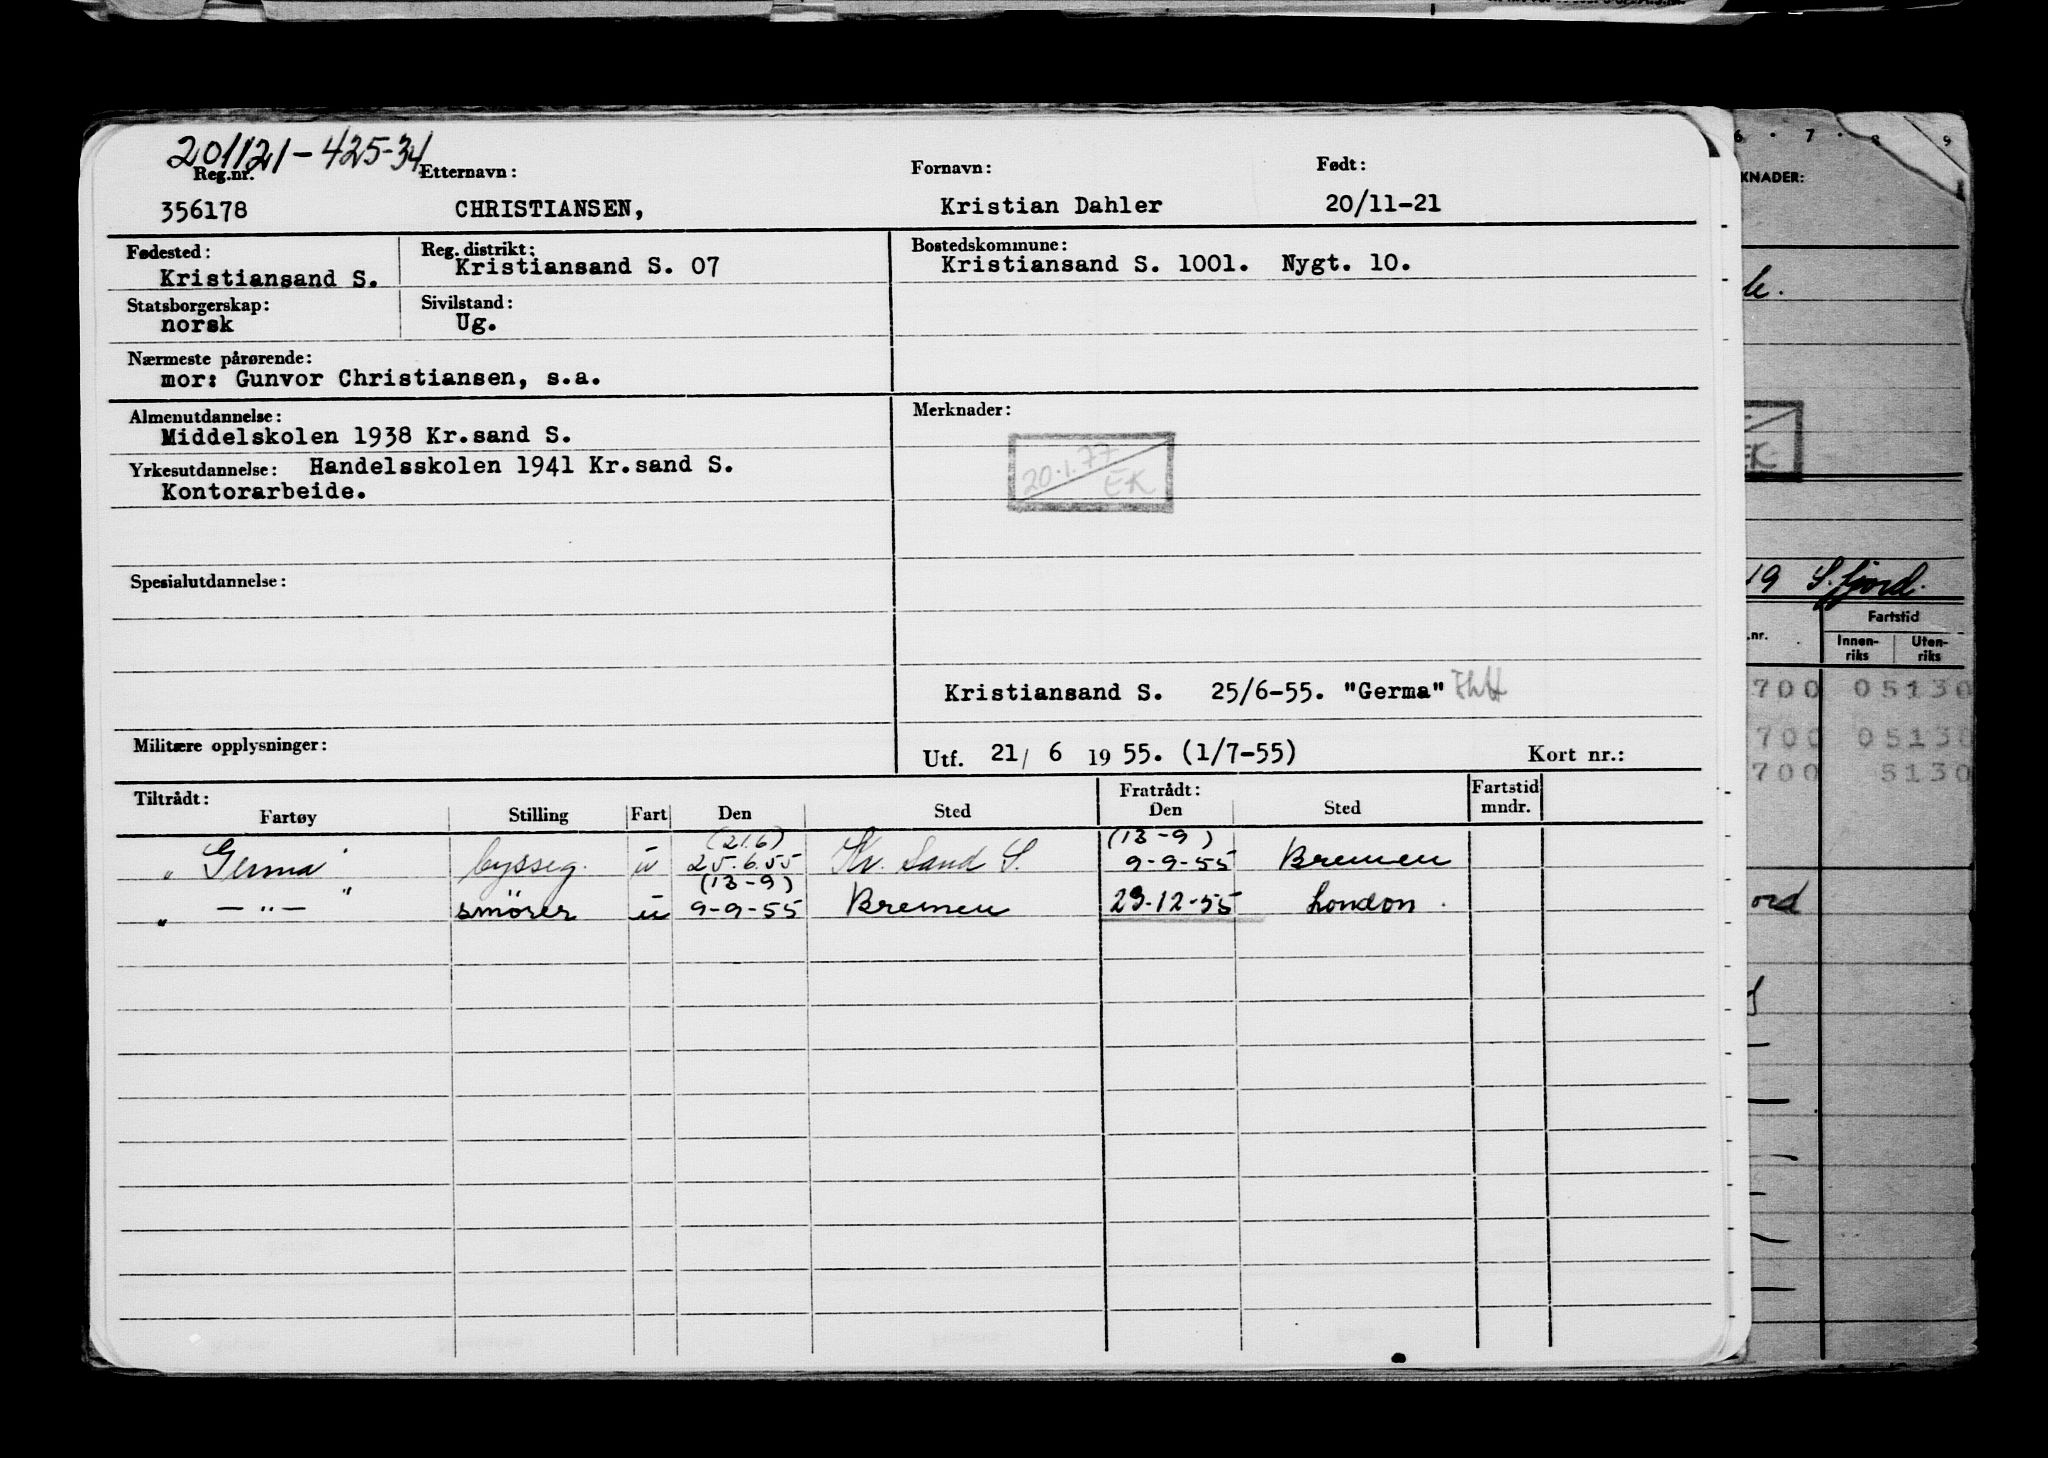 201121-425-34
Reg.nr. Etternavn: Fornavn: Født:
356178 CHRISTIANSEN, Kristian Dahler 20/11-21
Fødested: Reg. distrikt: Bostedskommune:
Kristiansand S. Kristiansand S. 07 Kristiansand S. 1001. Nygt. 10.
Statsborgerskap: Sivilstand:
norsk Ug.
Nærmeste pårørende:
mor: Gunvor Christiansen, s.a.
Almenutdannelse: Merknader:
Middelskolen 1938 Kr.sand S.
Yrkesutdannelse: Handelsskolen 1941 Kr.sand S.
Kontorarbeide.
20.1.77
EK
Spesialutdannelse:
Kristiansand S. 25/6-55. "Germa"
Militære opplysninger: Utf. 21/ 6 1955. (1/7-55) Kort nr.:
Tiltrådt: Fratrådt: Fartstid
Fartøy Stilling Fart Den Sted Den Sted mndr.
(21.6) (13-9)
"Germa" bysseg. u 25.6.55 Kr. Sand S. 9-9-55 Bremen
(13-9)
" — " — " smører u 9-9-55 Bremen 29-12-55 London.
6 . 7 . 8 9
KNADER:
le.
EK
19 S.fjord.
.nr. Fartstid
Innen-riks Uten-riks
700 05130
700 05130
700 5130
ord